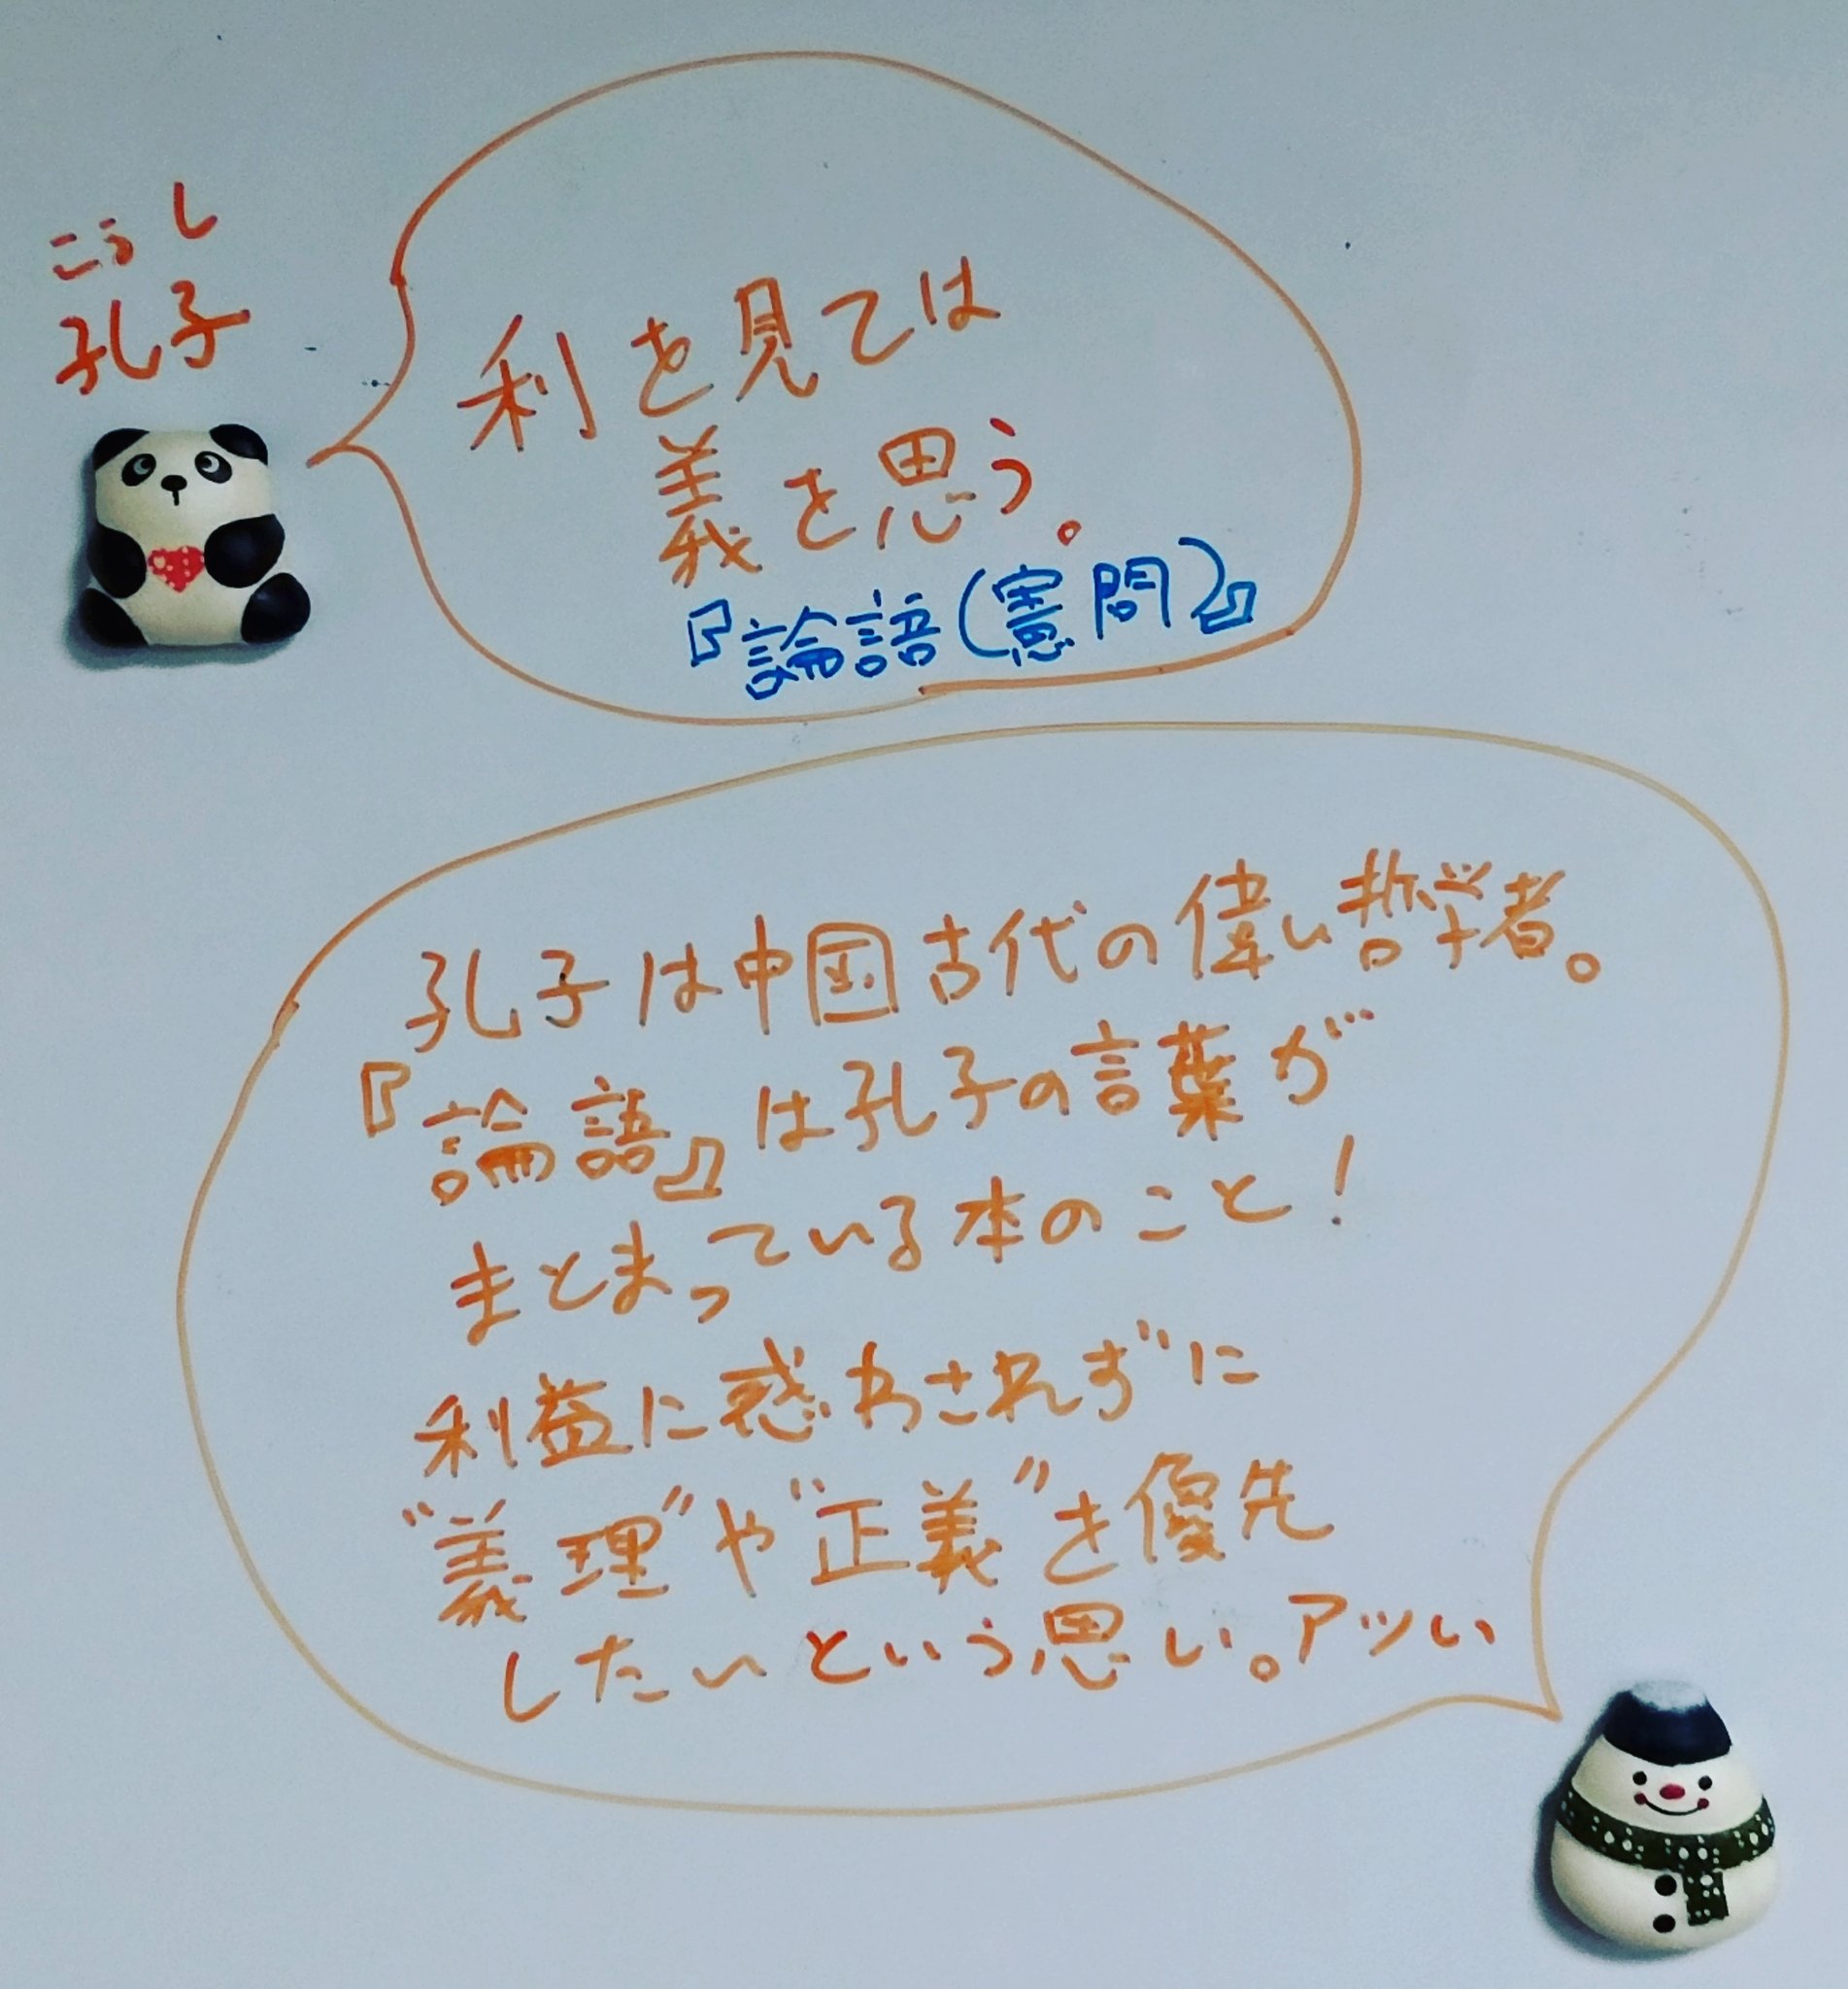 こうし
孔子
利を見ては
義を思う。
『論語(憲問)』
孔子は中国古代の偉い哲学者。
『論語』は孔子の言葉が
まとまっている本のこと!
利益に惑わされずに
“義理”や“正義”を優先
したいという思い。アツい